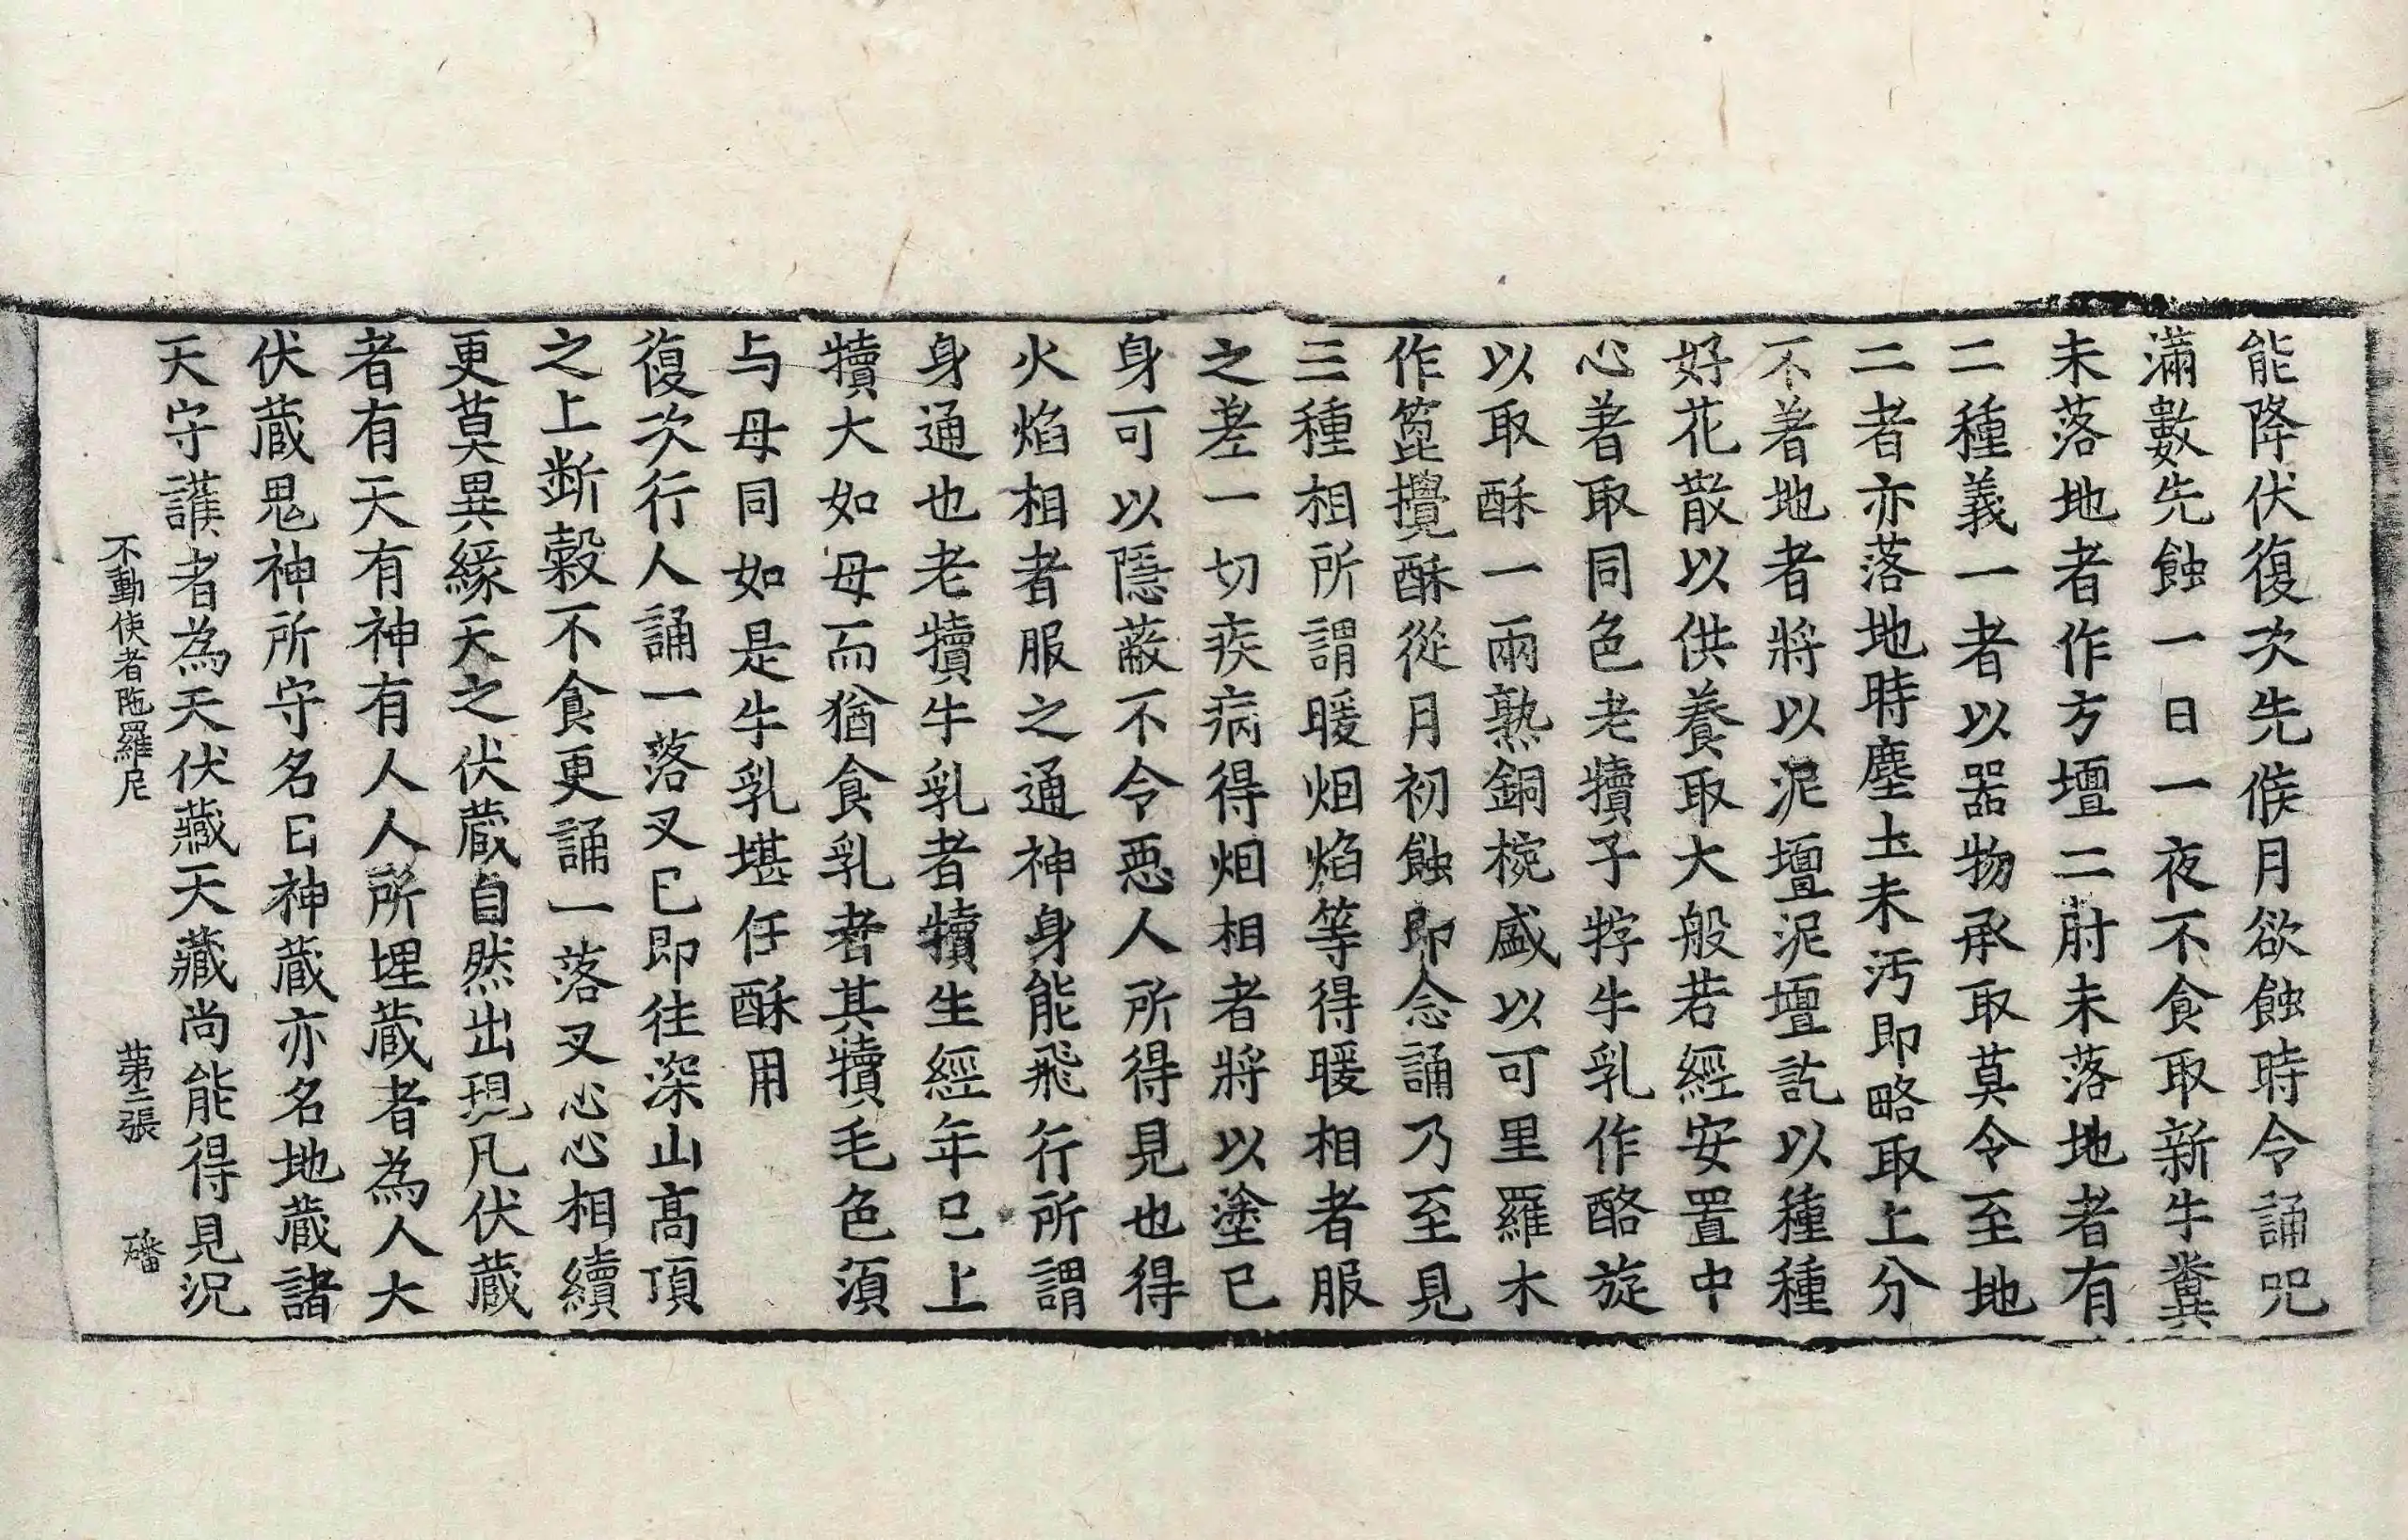 能降伏復次先候月欲蝕時令誦呪
滿數先蝕一日一夜不食取新牛糞
未落地者作方壇二肘未落地者有
二種義一者以器物承取莫令至地
二者亦落地時塵土未汚即略取上分
不著地者將以泥壇泥壇訖以種種
好花散以供養取大般若經安置中
心著取同色老犢子牸牛乳作酪旋
以取酥一兩熟銅椀盛以可里羅木
作箆攪酥從月初蝕即念誦乃至見
三種相所謂暖烟焰等得暖相者服
之差一切疾病得烟相者將以塗已
身可以隱蔽不令惡人所得見也得
火焰相者服之通神身能飛行所謂
身通也老犢牛乳者犢生經年已上
犢大如母而猶食乳者其犢毛色須
与母同如是牛乳堪任酥用
復次行人誦一落叉已即往深山高頂
之上断穀不食更誦一落叉心心相續
更莫異緣天之伏蔵自然出現凡伏蔵
者有天有神有人人所埋蔵者為人大
伏蔵鬼神所守名曰神蔵亦名地蔵諸
天守護者為天伏藏天藏尚能得見況
不動使者陁羅尼　第二張　磻